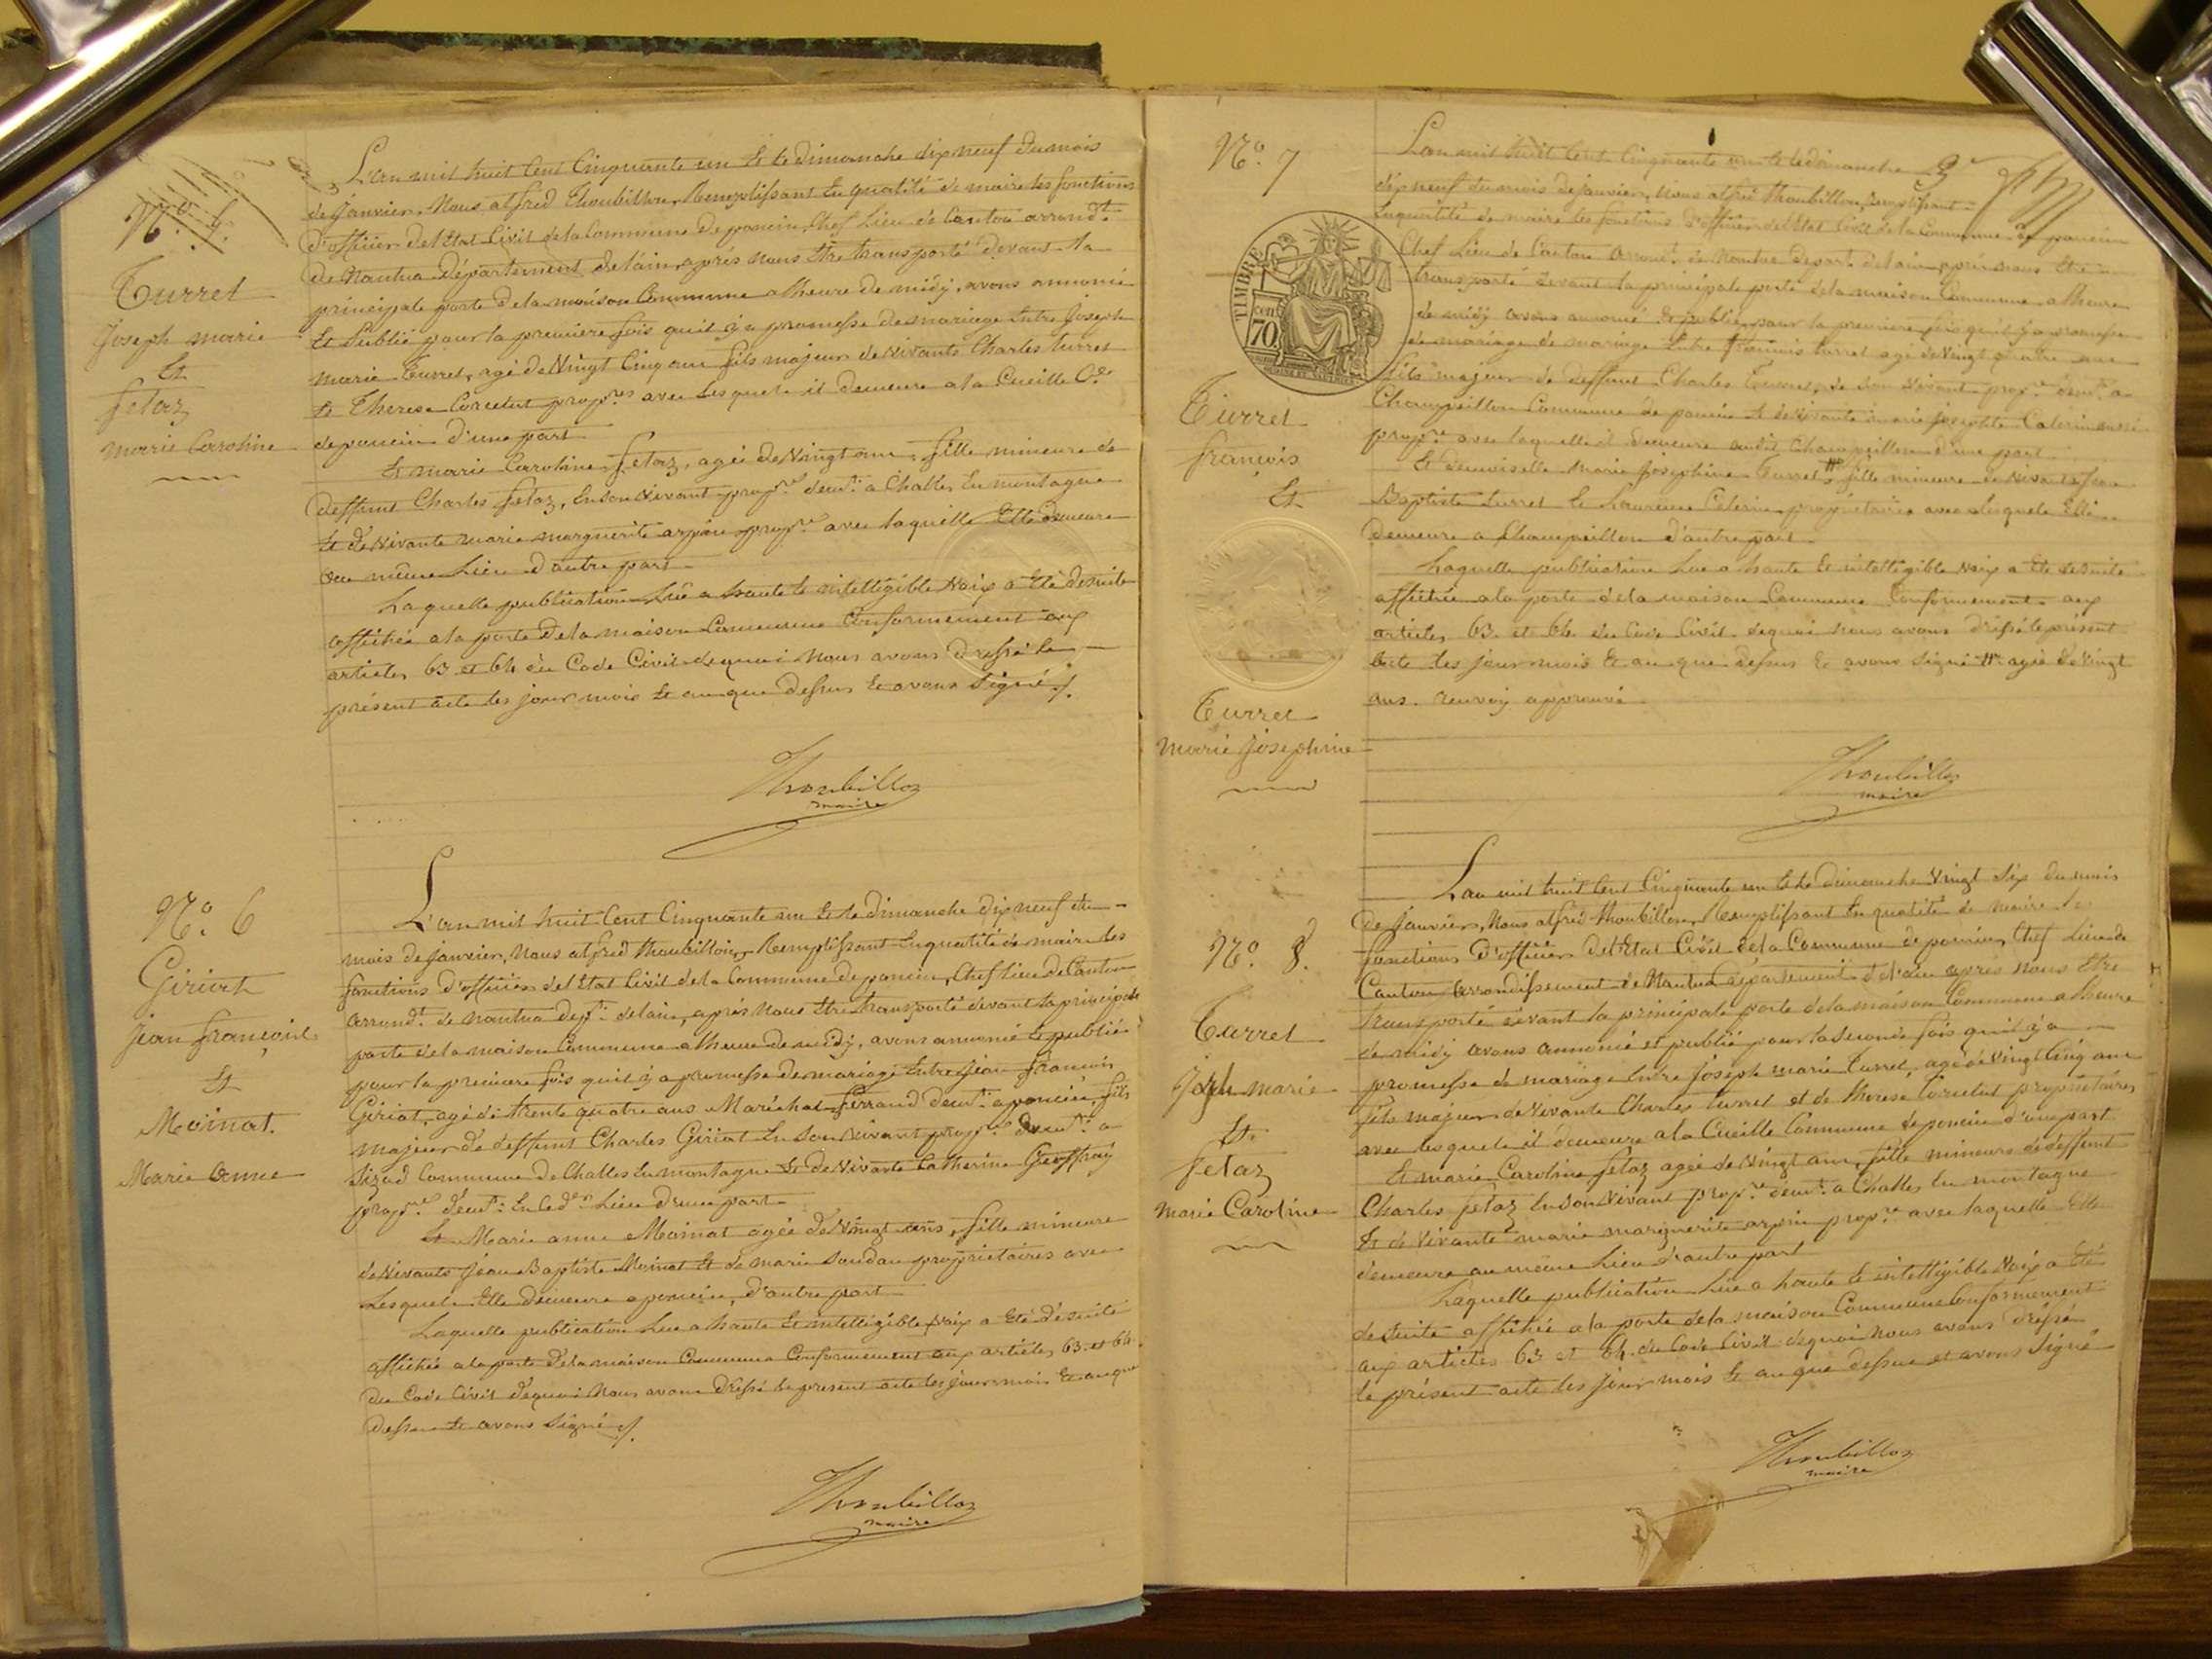 N.o 5.
Turrel
Joseph marie
Et
fetaz
marie Caroline
L'an mil huit Cent Cinquante un Et le dimanche dix neuf du mois
de Janvier, Nous alfred Thoubillon, Remplissant En qualité de maire les fonctions
d'officier de l'Etat Civil de la Commune de poncin, Chef Lieu de Canton arrondt.
de Nantua département de l'ain, après nous Etre transporté devant la
principale porte de la maison Commune a lheure de midy, avons annoncé
Et Publié pour la première fois quil y a promesse de mariage Entre Joseph
marie Turrel, agé de Vingt Cinq ans fils majeur de vivants Charles turrel
et Therese Corcelut propres avec Lesquels il demeure a la Cueille Cne
de poncin d'une part
Et marie Caroline fetaz, agée de Vingt ans, fille mineure de
deffunt Charles fetaz, En son Vivant propre demt. a Challes En montagne
Et de Vivante marie marguerite arpin propre avec laquelle Elle demeure
au même Lieu d'autre part
Laquelle publication Lue a haute Et intelligible Voix a Eté de suite
affichée a la porte de la maison Commune Conformement aux
articles 63 et 64 du Code Civil de quoi Nous avons dressé le
présent acte les jour mois Et an que dessus Et avons Signé ./.
Thoubillon
maire
N.o 6
Giriat
Jean françois
Et
Moinat.
Marie anne
L'an mil huit Cent Cinquante un Et le dimanche dix neuf du
mois de Janvier, Nous alfred thoubillon, Remplissant En qualité de maire les
fonctions d'officier de l'Etat Civil de la Commune de poncin, Chef lieu de Canton
arrondt. de nantua dept. de lain, après Nous Etre transporté devant la principale
porte de la maison Commune a lheure de midy, avons annoncé Et publié
pour la première fois quil y a promesse de mariage Entre Jean francois
Giriat, agé de trente quatre ans Maréchal ferrand demt. a poncin, fils
majeur de deffunt Charles Giriat En son vivant propre demt. a
Commune de Challes En montagne Et de Vivante Catherine Geoffray
propre demt. En Led. Lieu d'une part
Et Marie anne Moinat agée de Vingt ans, fille mineure
de Vivants Jean Baptiste Moinat Et de marie Soudan propriétaires avec
Lesquels Elle demeure a poncin, d'autre part
Laquelle publication Lue a haute Et intelligible Voix a Eté de suite
affichée a la porte de la maison Commune Conformement aux articles 63 et 64
du Code Civil de quoi Nous avons dressé le présent acte les jour mois Et an que
dessus Et avons Signé ./.
Thoubillon
maire
N.o 7
TIMBRE
70
Turrel
françois
Et
Turrel
marie Josephine
L'an mil huit Cent Cinquante un Et le dimanche
dix neuf du mois de janvier, Nous alfred thoubillon, remplissant
En qualité de maire les fonctions d'officier de l'Etat Civil de la Commune de poncin
Chef Lieu de Canton arrondt. de Nantua depart. de lain, après nous Etre
transporté devant la principale porte de la maison Commune a lheure
de midy avons annoncé Et publié pour la première fois quil y a promesse
de mariage de mariage Entre francois turrel agé de Vingt quatre ans
fils majeur de deffunt Charles Turrel, de son Vivant propre demt. a
Champeillon Commune de poncin Et de Vivante marie josephte Caterin aussi
propre avec laquelle il demeure audit Champeillon d'une part
Et demoiselle marie Josephine Turrel # fille mineure de Vivants Jean
Baptiste turrel Et Laurence Caterin propriétaires avec lesquels Elle
demeure a Champeillon d'autre part
Laquelle publication Lue a haute Et intelligible Voix a Eté de suite
affichée a la porte de la maison Commune Conformement aux
articles 63 et 64 du Code Civil de quoi nous avons dressé le présent
acte les jour mois Et an que dessus Et avons signé # agée de Vingt
ans. renvoy approuvé
Thoubillon
maire
N.o 8.
Turrel
Joseph marie
Et
fetaz
marie Caroline
L'an mil huit Cent Cinquante un Et le dimanche Vingt Six du mois
de Janvier, Nous alfred thoubillon, Remplissant En qualité de maire les
fonctions d'officier de l'Etat Civil de la Commune de poncin, Chef Lieu de
Canton arrondissement de Nantua département de l'ain après nous Etre
transporté devant la principale porte de la maison Commune a lheure
de midy avons annoncé et publié pour la seconde fois quil y a
promesse de mariage Entre joseph marie Turrel, agé de Vingt Cinq ans
fils majeur de Vivants Charles turrel et de therese Corcelut propriétaires
avec lesquels il demeure a la Cueille Commune de poncin d'une part
Et marie Caroline fetaz agée de Vingt ans, fille mineure de deffunt
Charles fetaz En son Vivant propre demt. a Challes En montagne
Et de Vivante marie marguerite arpin propre avec laquelle Elle
demeure au même Lieu d'autre part
Laquelle publication Lue a haute Et intelligible Voix a Eté
de Suite affichée a la porte de la maison Commune Conformement
aux articles 63 et 64 du Code Civil de quoi Nous avons dressé
le présent acte les jour mois Et an que dessus et avons Signé
Thoubillon
maire